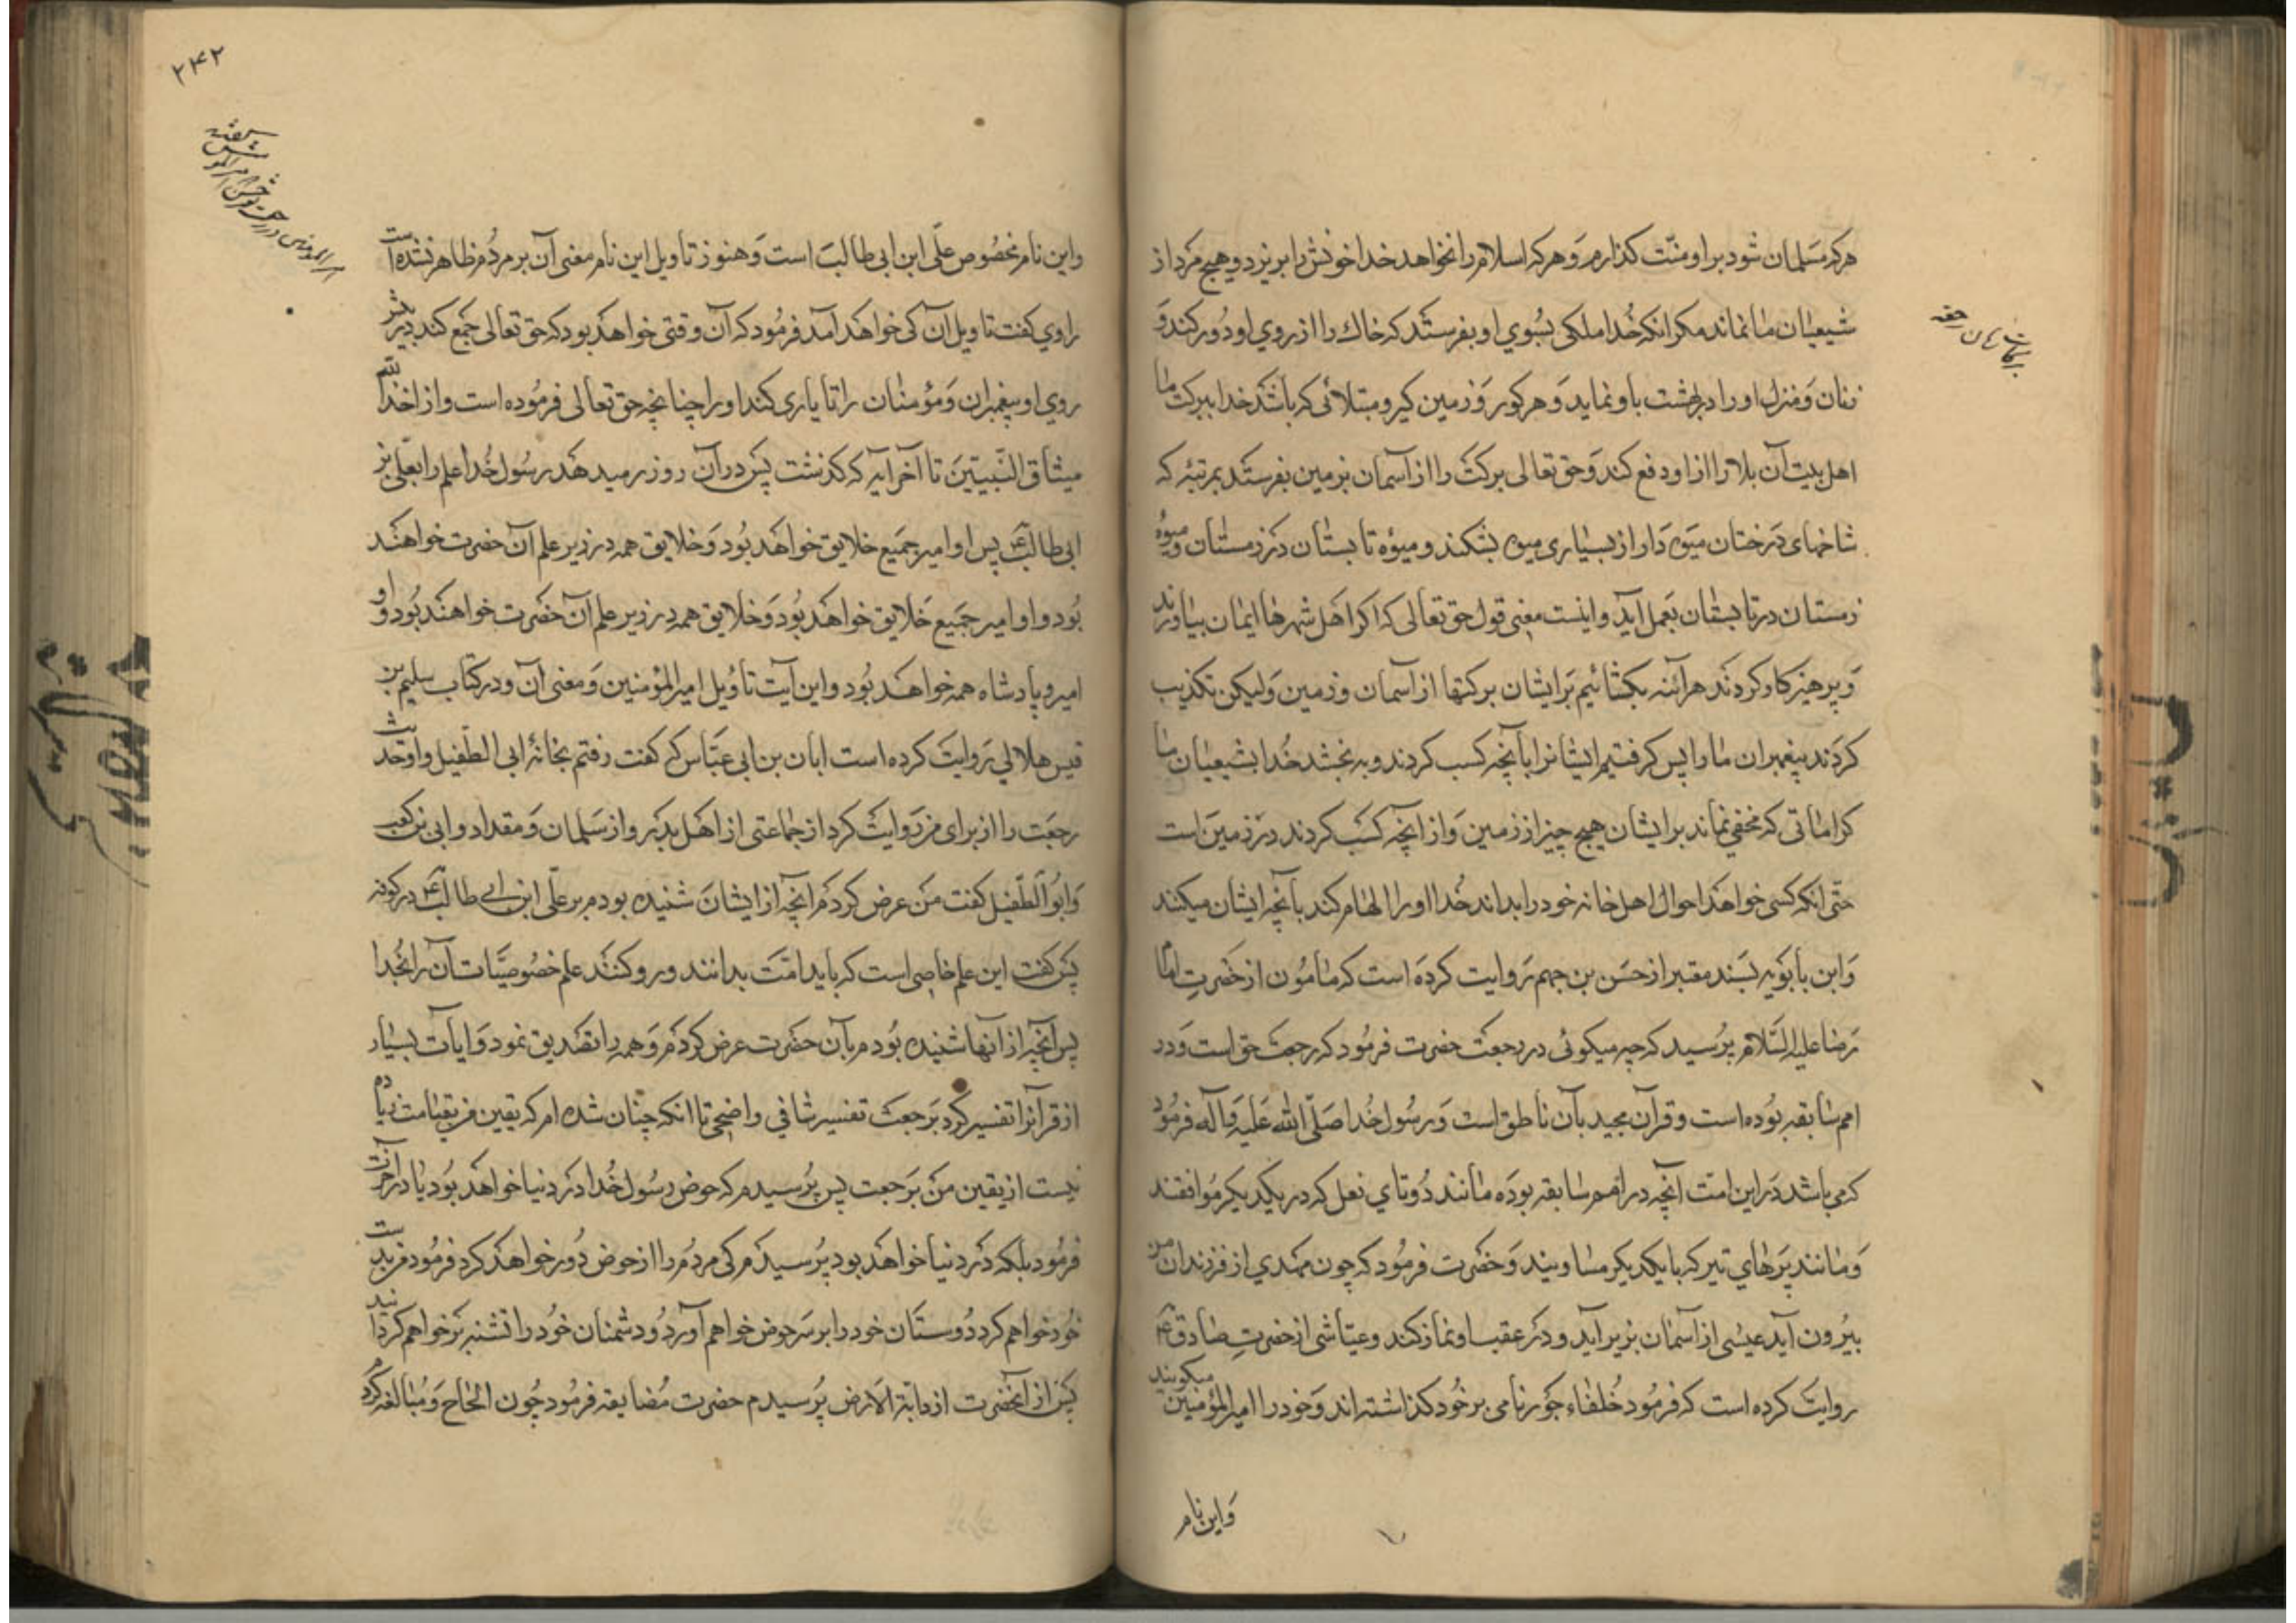 هرکه مسلمان شود بر او منّت کذارم و هرکه اسلام را نخواهد خدا خونش را بریزد و هیچ مرد از
شیعیان ما نماند مکر انکه خدا ملکی بسوي او بفرستد که خاك را از روي او دور کند و
زنان و منزل او را در بهشت باو نماید و هر کور و زمین کیر و مبتلائی که باشد خدا ببرکت ما
اهل بیت آن بلا را از او دفع کند و حق تعالی برکت را از آسمان بزمین بفرستد بمرتبۀ که
شاخهای درختان میوه دار از بسیاری میوه بشکند و میوۀ تابستان در زمستان و میوۀ
زمستان در تابستان بعمل آید و اینست معنی قول حق تعالی که اکر اهل شهرها ایمان بیاورند
و پرهیزکار کردند هر آئنه بکشائیم بر ایشان برکتها از آسمان و زمین و لیکن تکذیب
کردند پیغمبران ما را پس کرفتیم ایشانرا بآنچه کسب کردند و به بخشد خدا بشیعیان ما
کراماتی که مخفي نماند بر ایشان هیچ چیز از زمین و از انچه کسب کردند در زمین است
حتی انکه کسی خواهد احوال اهل خانه خود را بداند خدا او را الهام کند بآنچه ایشان میکنند
و ابن بابویه بسند معتبر از حسن بن جهم روایت کرده است که مامون از حضرت امام
رضا علیه السّلام پرسید که چه میکوئی در رجعت حضرت فرمود که رجعت حق است و در
امم سابقه بوده است و قرآن مجید بآن ناطق است و رسول خدا صلّی الله علیه و آله فرمود
که می باشد در این امت آنچه در امم سابقه بوده مانند دوتاي نعل که در یکدیکر موافقند
و مانند پرهاي تیر که با یکدیکر مساویند و حضرت فرمود که چون مهدي از فرزندان من
بیرون آید عیسی از آسمان بزیر آید و در عقب او نماز کند و عیاشی از حضرت صادق ع
روایت کرده است که فرمود خلفاء جور نامی بر خود کذاشته اند و خود را امیر المؤمنین میکویند
و این نام
برکات زمان رجعت
۲۴۲
و این نام مخصوص علّی ابن ابی طالب است و هنوز تاویل این نام معنی آن بر مردم ظاهر نشده است
راوي کفت تاویل آن کی خواهد آمد فرمود که آن وقتی خواهد بود که حق تعالی جمع کند در پیش
روي او پیغمبران و مؤمنان را تا یاری کند او را چنانچه حق تعالی فرموده است و اذ اخذ الله
میثاق النّبیین تا آخر آیه که کذشت پس در آن روز میدهد رسول خدا علم را بعلی بن
ابی طالب ع پس او امیر جمیع خلایق خواهد بود و خلایق همه در زیر علم آن حضرت خواهند
بود و او امیر جمیع خلایق خواهد بود و خلایق همه در زیر علم آن حضرت خواهند بود و او
امیر و پادشاه همه خواهد بود و این آیت تأویل امیر المؤمنین و معنی آن و در کتاب سلیم بن
قیس هلالي روایت کرده است ابان بن ابی عیّاس که کفت رفتم بخانۀ ابی الطفیل و او حدیث
رجعت را از برای من روایت کرد از جماعتی از اهل بدر و از سلمان و مقداد و ابی بن کعب
و ابو الطّفیل کفت من عرض کردم آنچه از ایشان شنیده بودم بر علّی ابن ابی طالب ع در کوفه
پس کفت این علم خاصی است که باید امّت بدانند و رو کنند علم خصوصیّات آن را بخدا
پس آنچه از انها شنیده بودم بآن حضرت عرض کردم و همه را تصدیق نمود و ایات بسیار
از قرآنرا تفسیر کرد برجعت تفسیر شافي واضحی تا انکه چنان شده ام که یقین من بقیامت زیاده
نیست از یقین من برجعت پس پرسیدم که حوض رسول خدا در دنیا خواهد بود یا در آخرت
فرمود بلکه در دنیا خواهد بود پرسیدم کی مردم را از حوض دور خواهد کرد فرمود من بدست
خود خواهم کرد دوستان خود را بر سر حوض خواهم آورد و دشمنان خود را تشنه بر خواهم کردانید
پس از آنحضرت از دابّة الارض پرسیدم حضرت مضایقه فرمود چون الحاح و مبالغه کردم